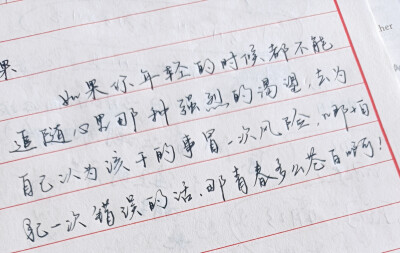 果
如果你年轻的时候都不能
追随心里那种强烈的渴望,去为
自己认为该干的事冒一次风险,哪怕
犯一次错误的话,那青春多么苍白啊!
her